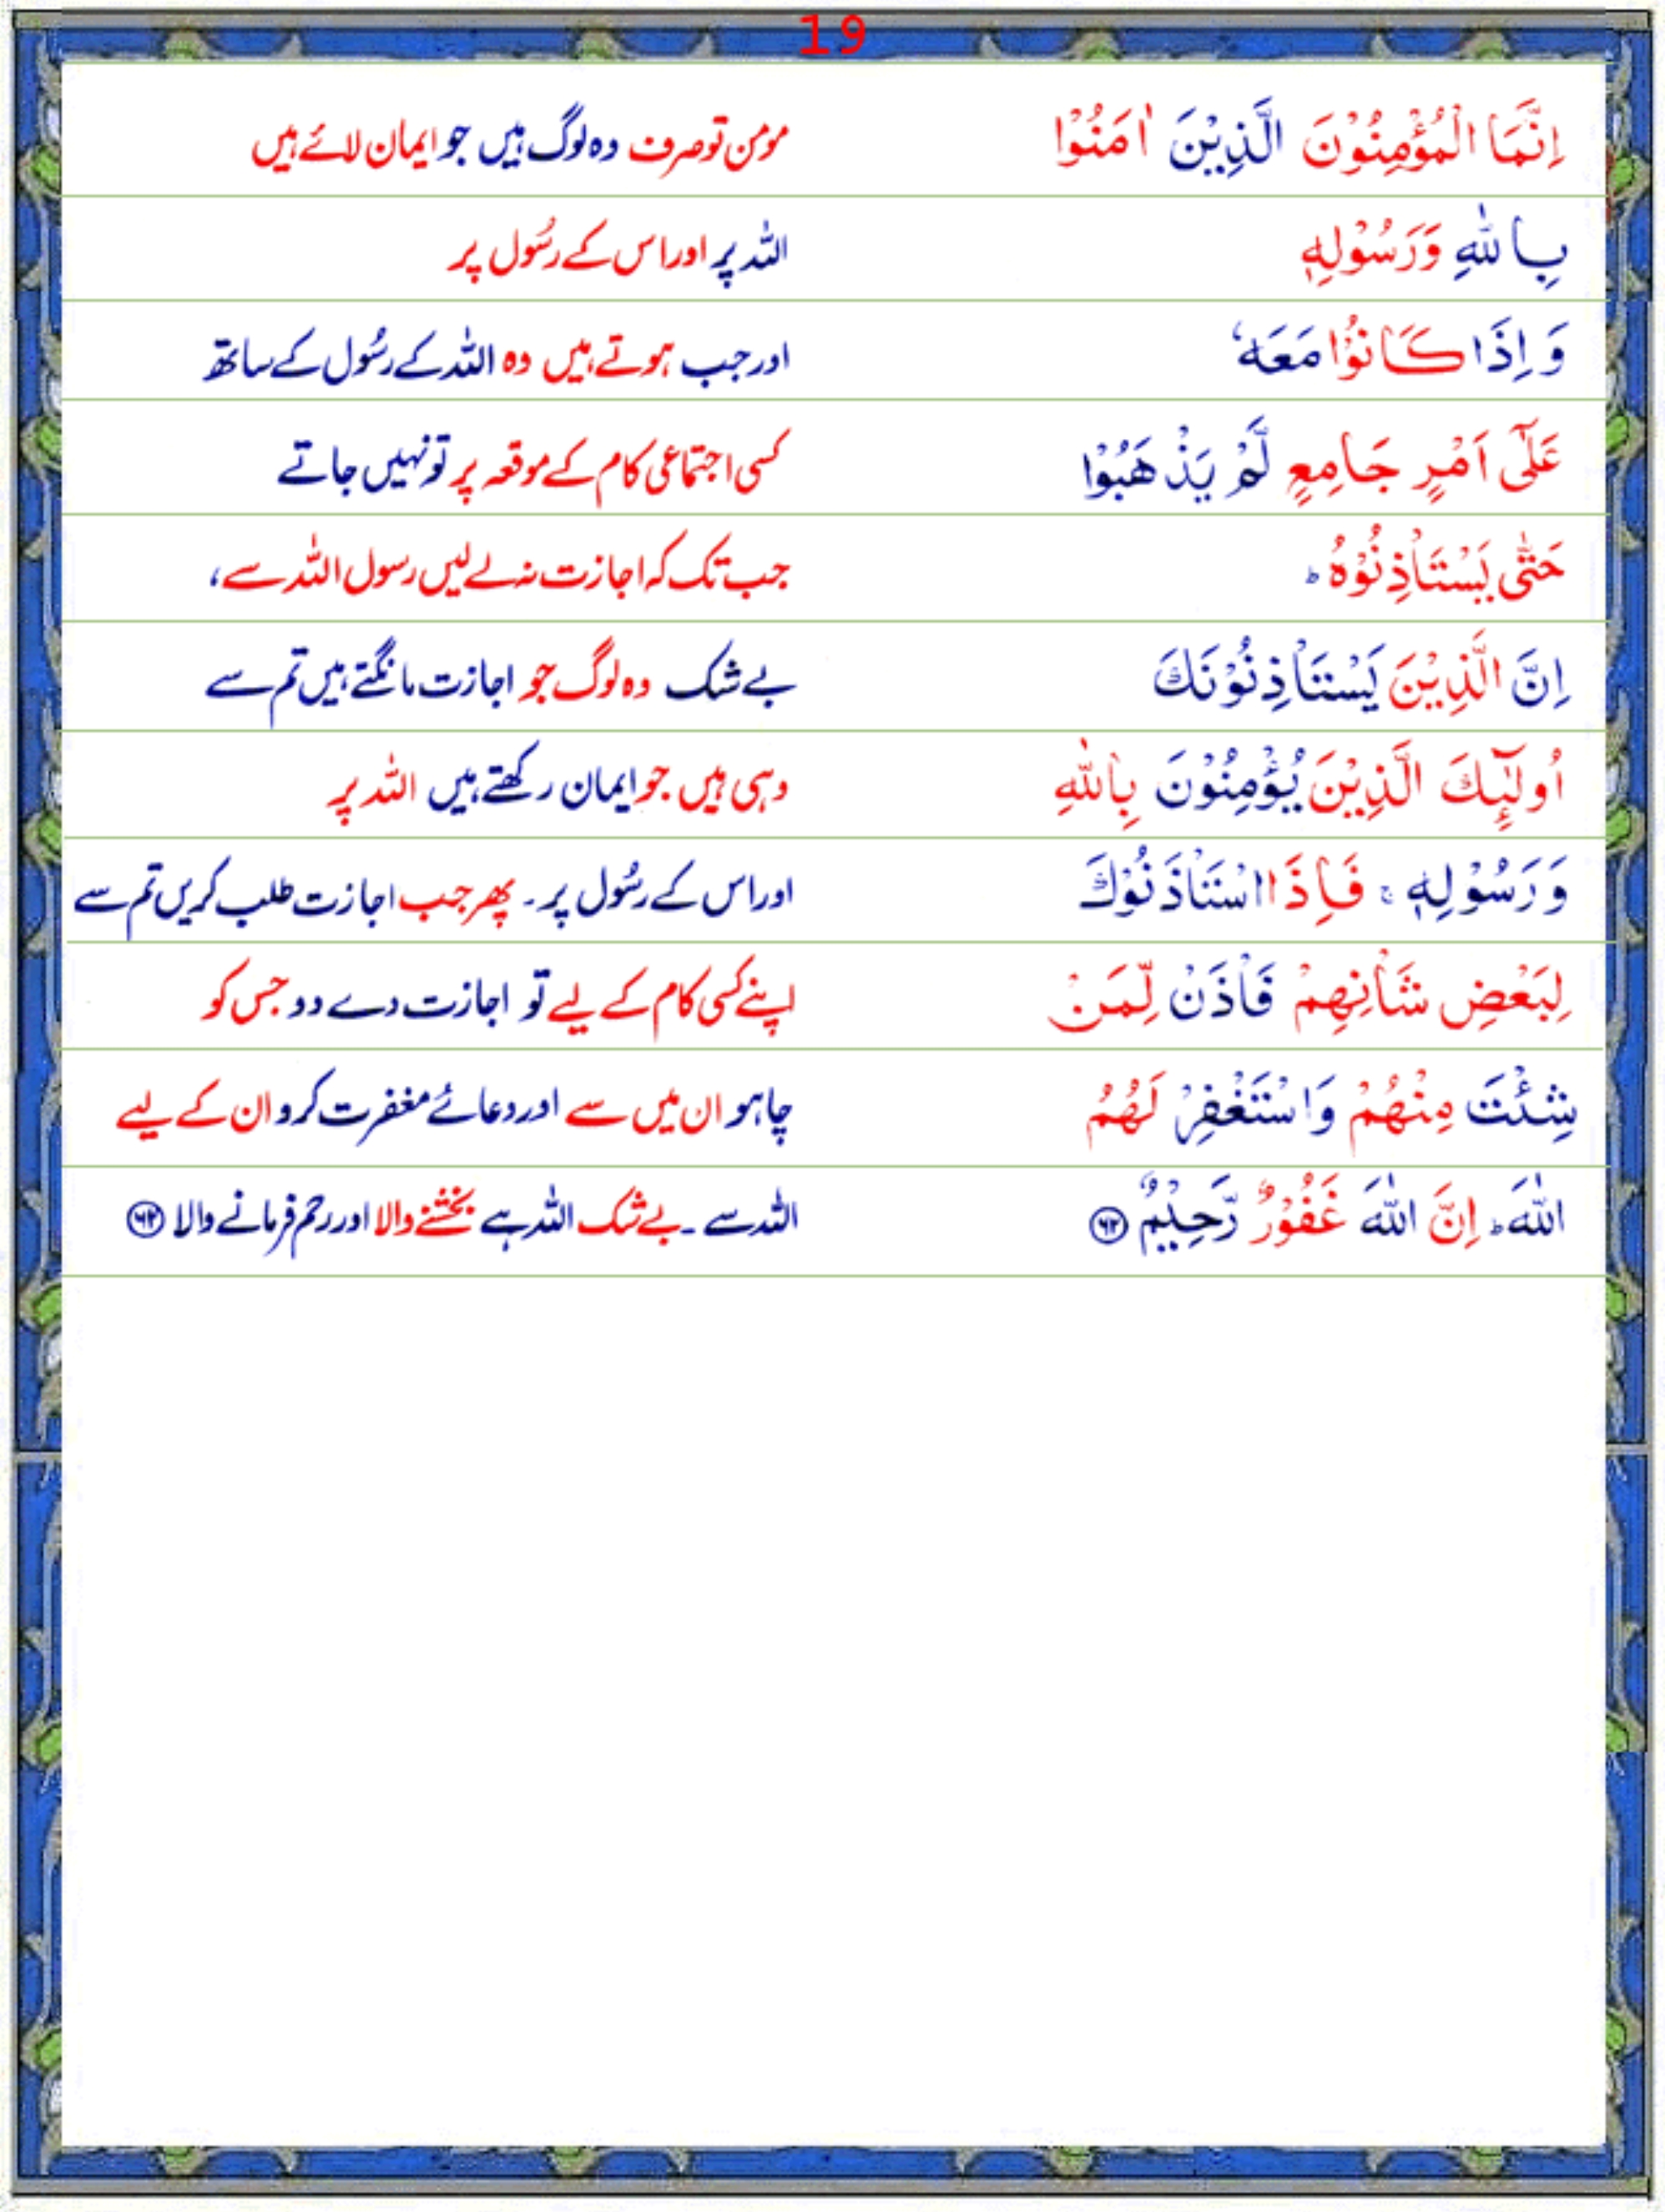 19
اِنَّمَا الْمُؤْمِنُوْنَ الَّذِيْنَ اٰمَنُوْا مومن تو صرف وہ لوگ ہیں جو ایمان لائے ہیں
بِاللّٰهِ وَرَسُوْلِهٖ اللہ پر اور اس کے رسُول پر
وَاِذَا كَانُوْا مَعَهٗ اور جب ہوتے ہیں وہ اللہ کے رسُول کے ساتھ
عَلٰٓى اَمْرٍ جَامِعٍ لَّمْ يَذْهَبُوْا کسی اجتماعی کام کے موقعہ پر تو نہیں جاتے
حَتّٰى يَسْتَاْذِنُوْهُ ؕ جب تک کہ اجازت نہ لے لیں رسول اللہ سے،
اِنَّ الَّذِيْنَ يَسْتَاْذِنُوْنَكَ بے شک وہ لوگ جو اجازت مانگتے ہیں تم سے
اُولٰٓئِكَ الَّذِيْنَ يُؤْمِنُوْنَ بِاللّٰهِ وہی ہیں جو ایمان رکھتے ہیں اللہ پر
وَرَسُوْلِهٖ ۚ فَاِذَا اسْتَاْذَنُوْكَ اور اس کے رسُول پر۔ پھر جب اجازت طلب کریں تم سے
لِبَعْضِ شَاْنِهِمْ فَاْذَنْ لِّمَنْ اپنے کسی کام کے لیے تو اجازت دے دو جس کو
شِئْتَ مِنْهُمْ وَاسْتَغْفِرْ لَهُمُ چاہو ان میں سے اور دعائے مغفرت کرو ان کے لیے
اللّٰهَ ؕ اِنَّ اللّٰهَ غَفُوْرٌ رَّحِيْمٌ ۶۲ اللہ سے۔ بے شک اللہ ہے بخشنے والا اور رحم فرمانے والا ۶۲